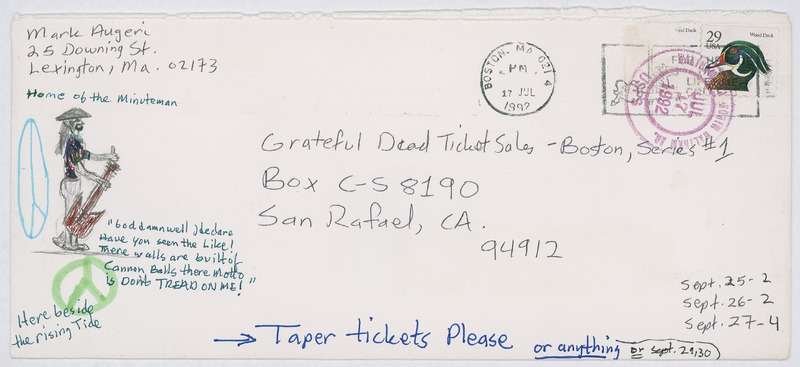 Mark Augeri
25 Downing St.
Lexington, Ma. 02173
Home of the Minuteman
BOSTON, MA 021 4
PM
17 JUL
1992
Wood Duck
29
USA
Wood Duck
JUL
17
1992
Grateful Dead Ticket Sales - Boston, Series #1
Box C-S 8190
San Rafael, CA.
94912
"God damn well I declare
Have you seen the Like!
There walls are built of
Cannon Balls there Motto
is DON'T TREAD ON ME!"
Here beside
the rising Tide
Sept. 25-2
Sept. 26-2
Sept. 27-4
→ Taper tickets Please or anything or sept. 29,30